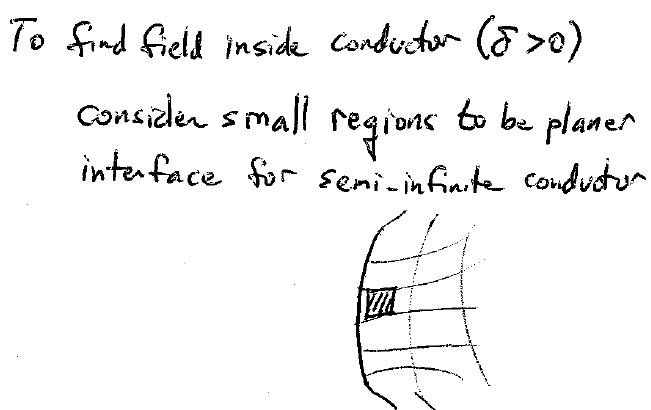 To find field inside conductor (δ>0)
Consider small regions to be planer
interface for semi-infinite conductor